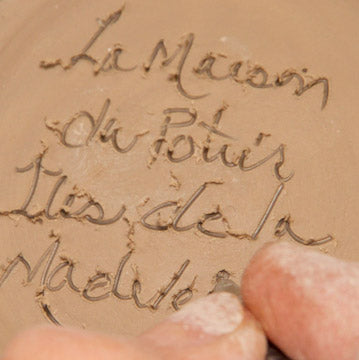 La Maison
du Potier
Iles de la
Madele